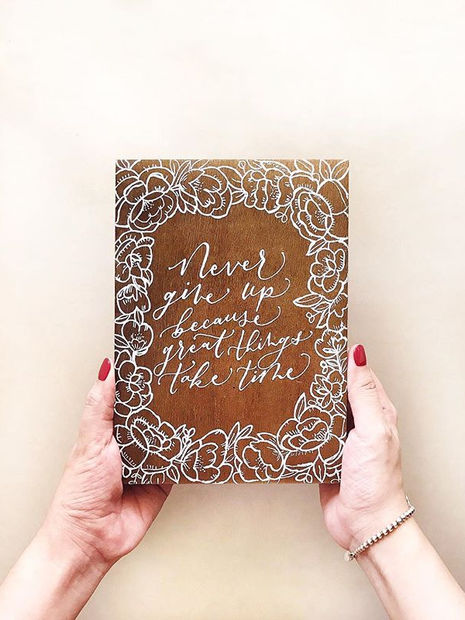 Never
give up
because
great things
take time